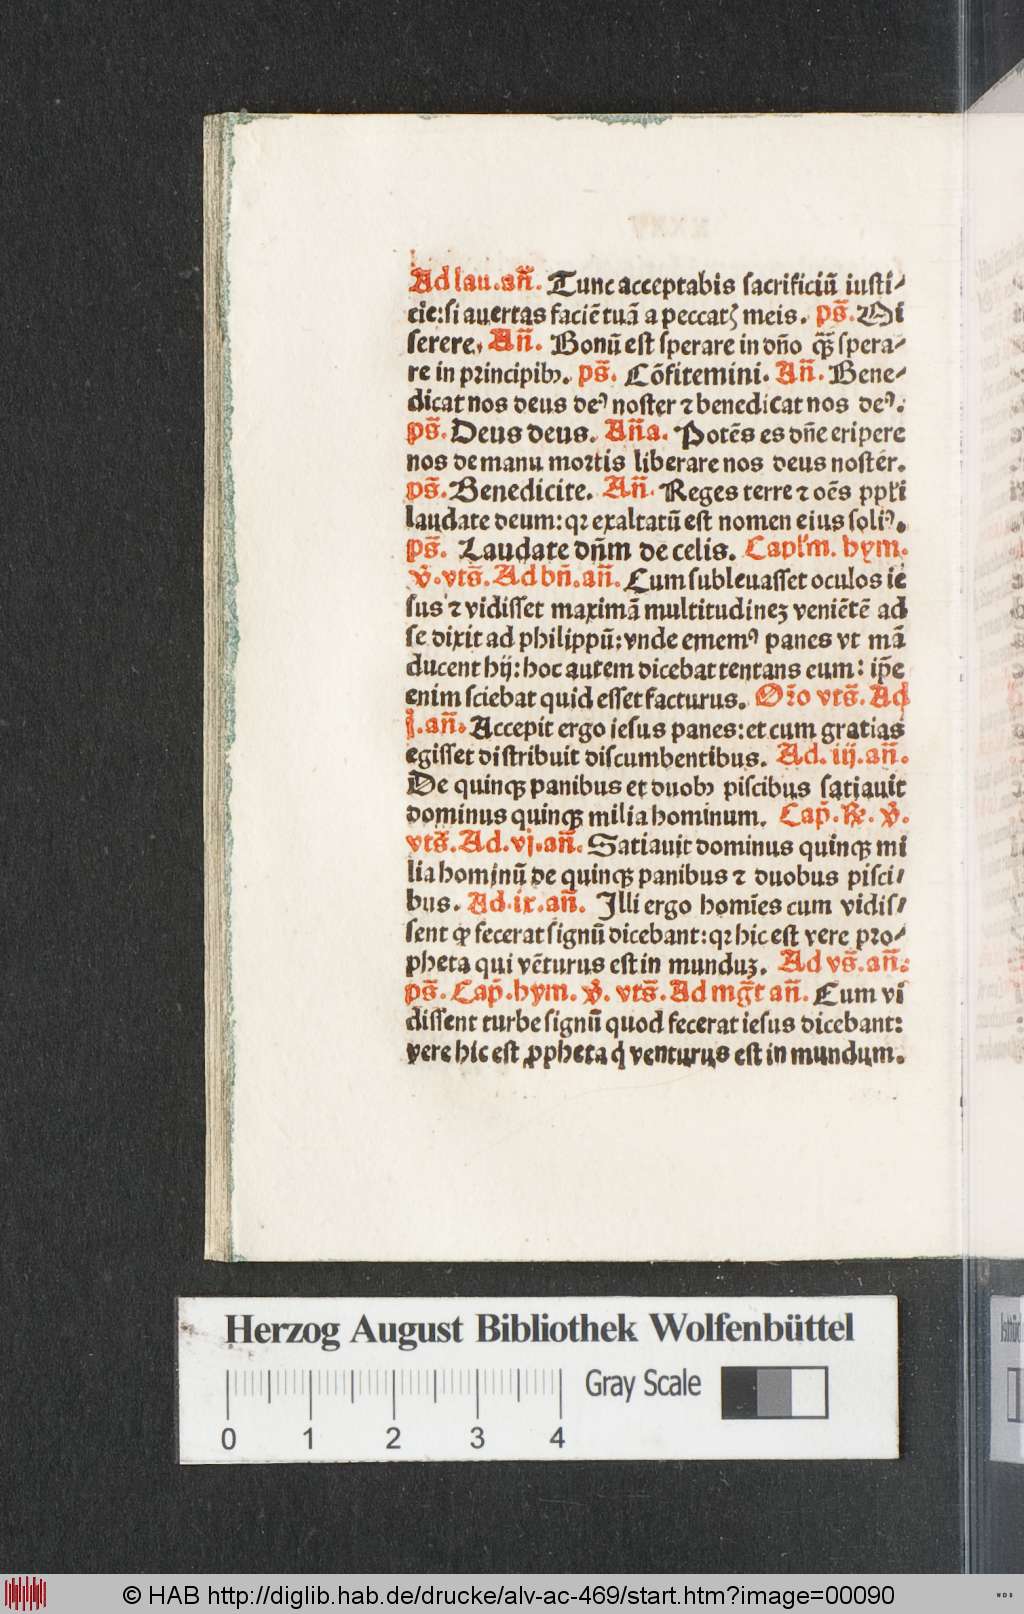 Ad lau. añ. Tunc acceptabis sacrificiū iusti⸗
cie: si auertas faciē tuā a peccatꝭ meis. ps̄. Mi
serere. Añ. Bonū est sperare in dño ꝙ̄ spera⸗
re in principibꝫ. ps̄. Cōfitemini. Añ. Bene⸗
dicat nos deus deꝰ noster ⁊ benedicat nos deꝰ.
ps̄. Deus deus. Aña. Potēs es dñe eripere
nos de manu mortis liberare nos deus noster.
ps̄. Benedicite. Añ. Reges terre ⁊ oēs ppl̄i
laudate deum: qꝛ exaltatū est nomen eius soliꝰ.
ps̄. Laudate dn̄m de celis. Capl̄m. hym.
v̄. vts̄. Ad bñ. añ. Cum subleuasset oculos ie
sus ⁊ vidisset maximā multitudineꝫ veniētē ad
se dixit ad philippū: vnde ememꝰ panes vt mā
ducent hij: hoc autem dicebat tentans eum: ip̄e
enim sciebat quid esset facturus. Oꝛ̄o vts̄. Ad
j. añ. Accepit ergo iesus panes: et cum gratias
egisset distribuit discumbentibus. Ad. iij. añ.
De quinqꝫ panibus et duobꝫ piscibus satiauit
dominus quinqꝫ milia hominum. Cap̄. ℞. v̄.
vts̄. Ad. vj. añ. Satiauit dominus quinqꝫ mi
lia hominū de quinqꝫ panibus ⁊ duobus pisci⸗
bus. Ad. ix. añ. Illi ergo homīes cum vidis⸗
sent ꝙ fecerat signū dicebant: qꝛ hic est vere pro⸗
pheta qui vēturus est in munduꝫ. Ad vs̄. añ.
ps̄. Cap̄. hym. v̄. vts̄. Ad mḡt añ. Cum vi
dissent turbe signū quod fecerat iesus dicebant:
vere hic est ꝓpheta q̇ venturus est in mundum.
Herzog August Bibliothek Wolfenbüttel
Gray Scale
0 1 2 3 4
© HAB http://diglib.hab.de/drucke/alv-ac-469/start.htm?image=00090